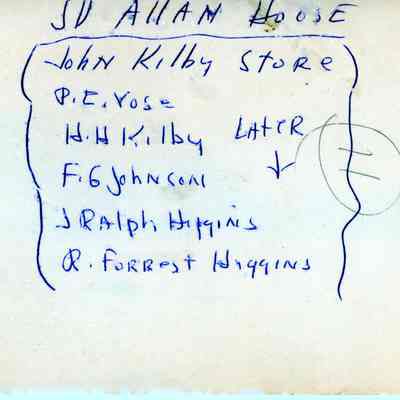 JD Allan House
John Kilby Store
P.E. Vose
H.H Kilby Later
F.G Johnson
J Ralph Higgins
R. Forrest Higgins